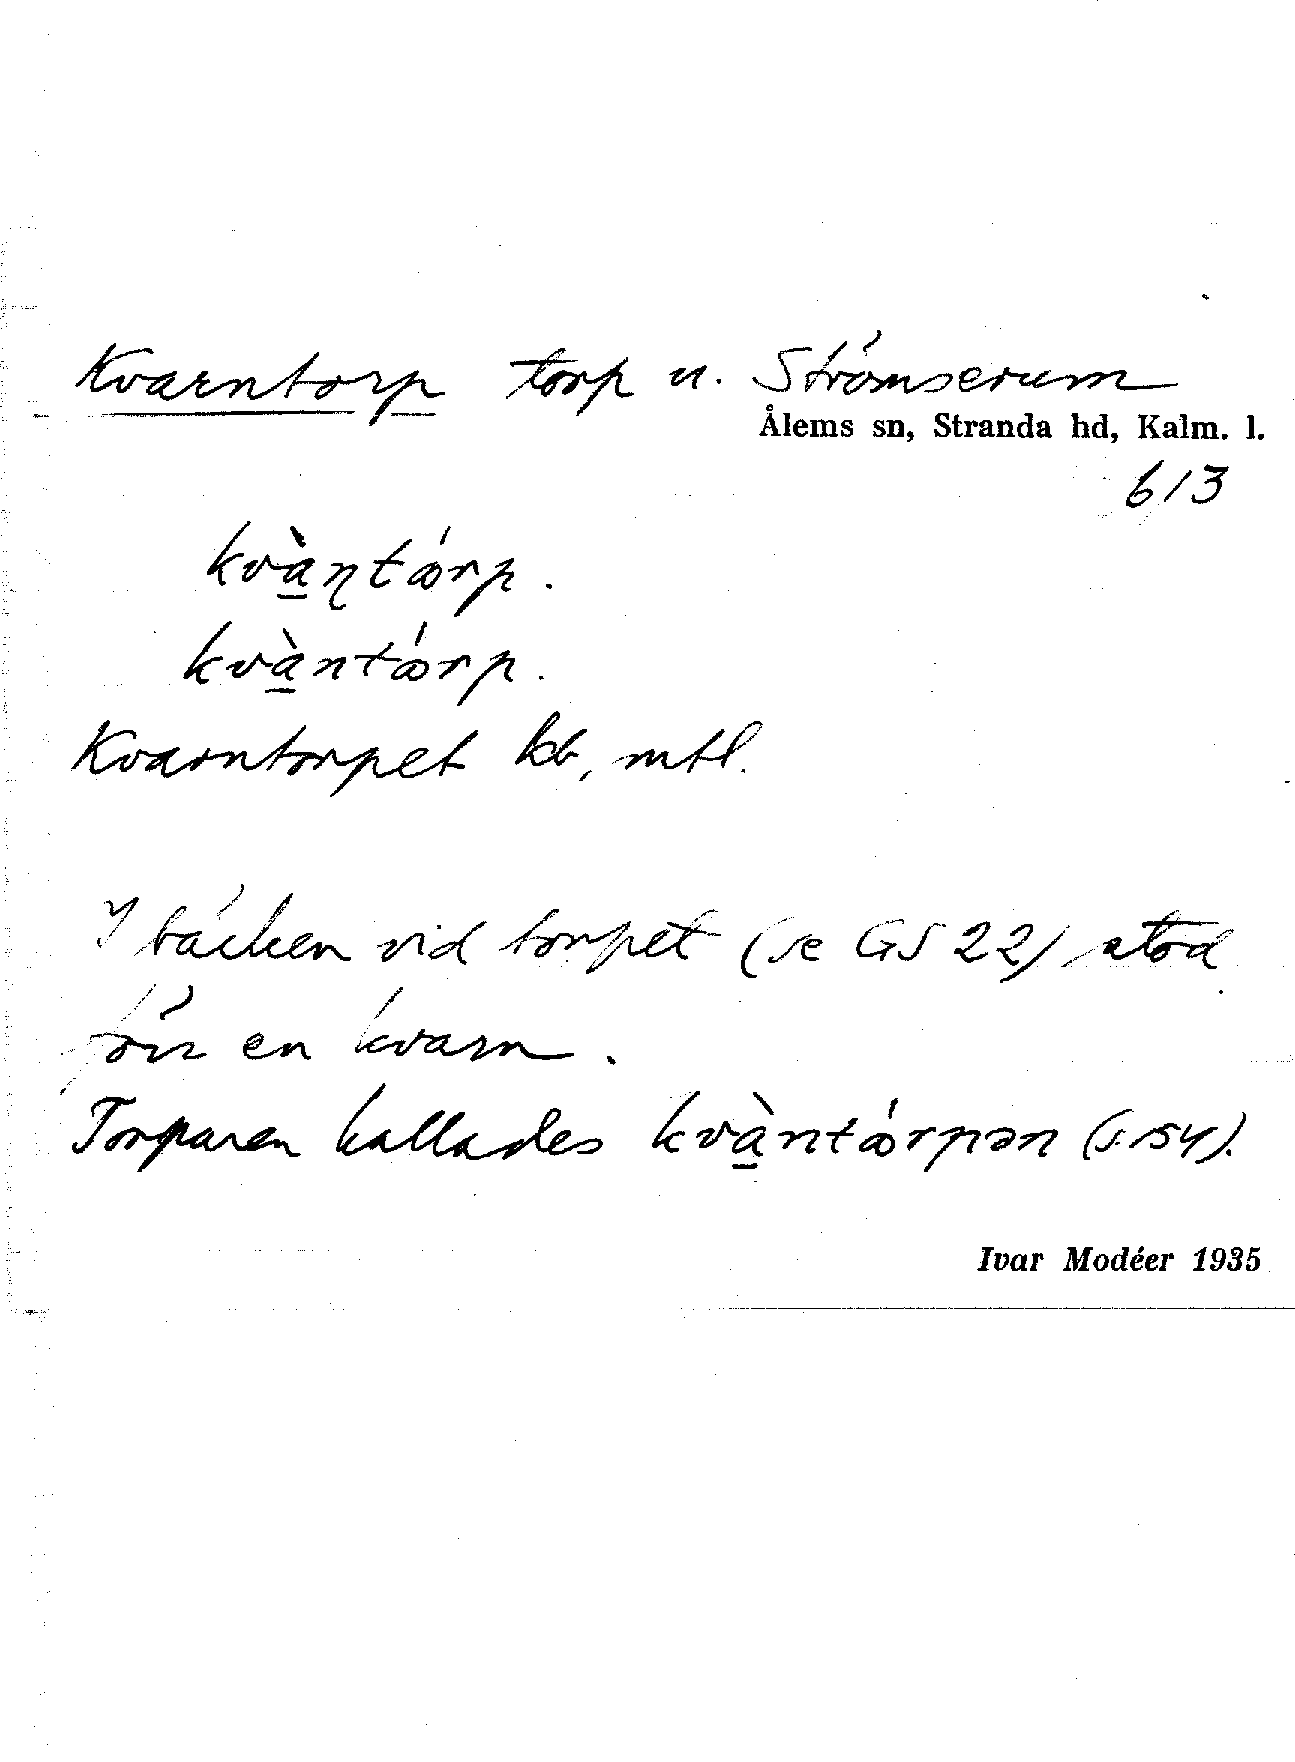 Kvarntorp torp u. Strömserum
Ålems sn, Stranda hd, Kalm. l.
6/3
kvàɳtǿrp.
kvàntǿrp.
Kvarntorpet kb, mtl.
I bäcken vid torpet (se GS 22) stod
förr en kvarn.
Torparen kallades kvàntǿrpən (s. 154).
Ivar Modéer 1935